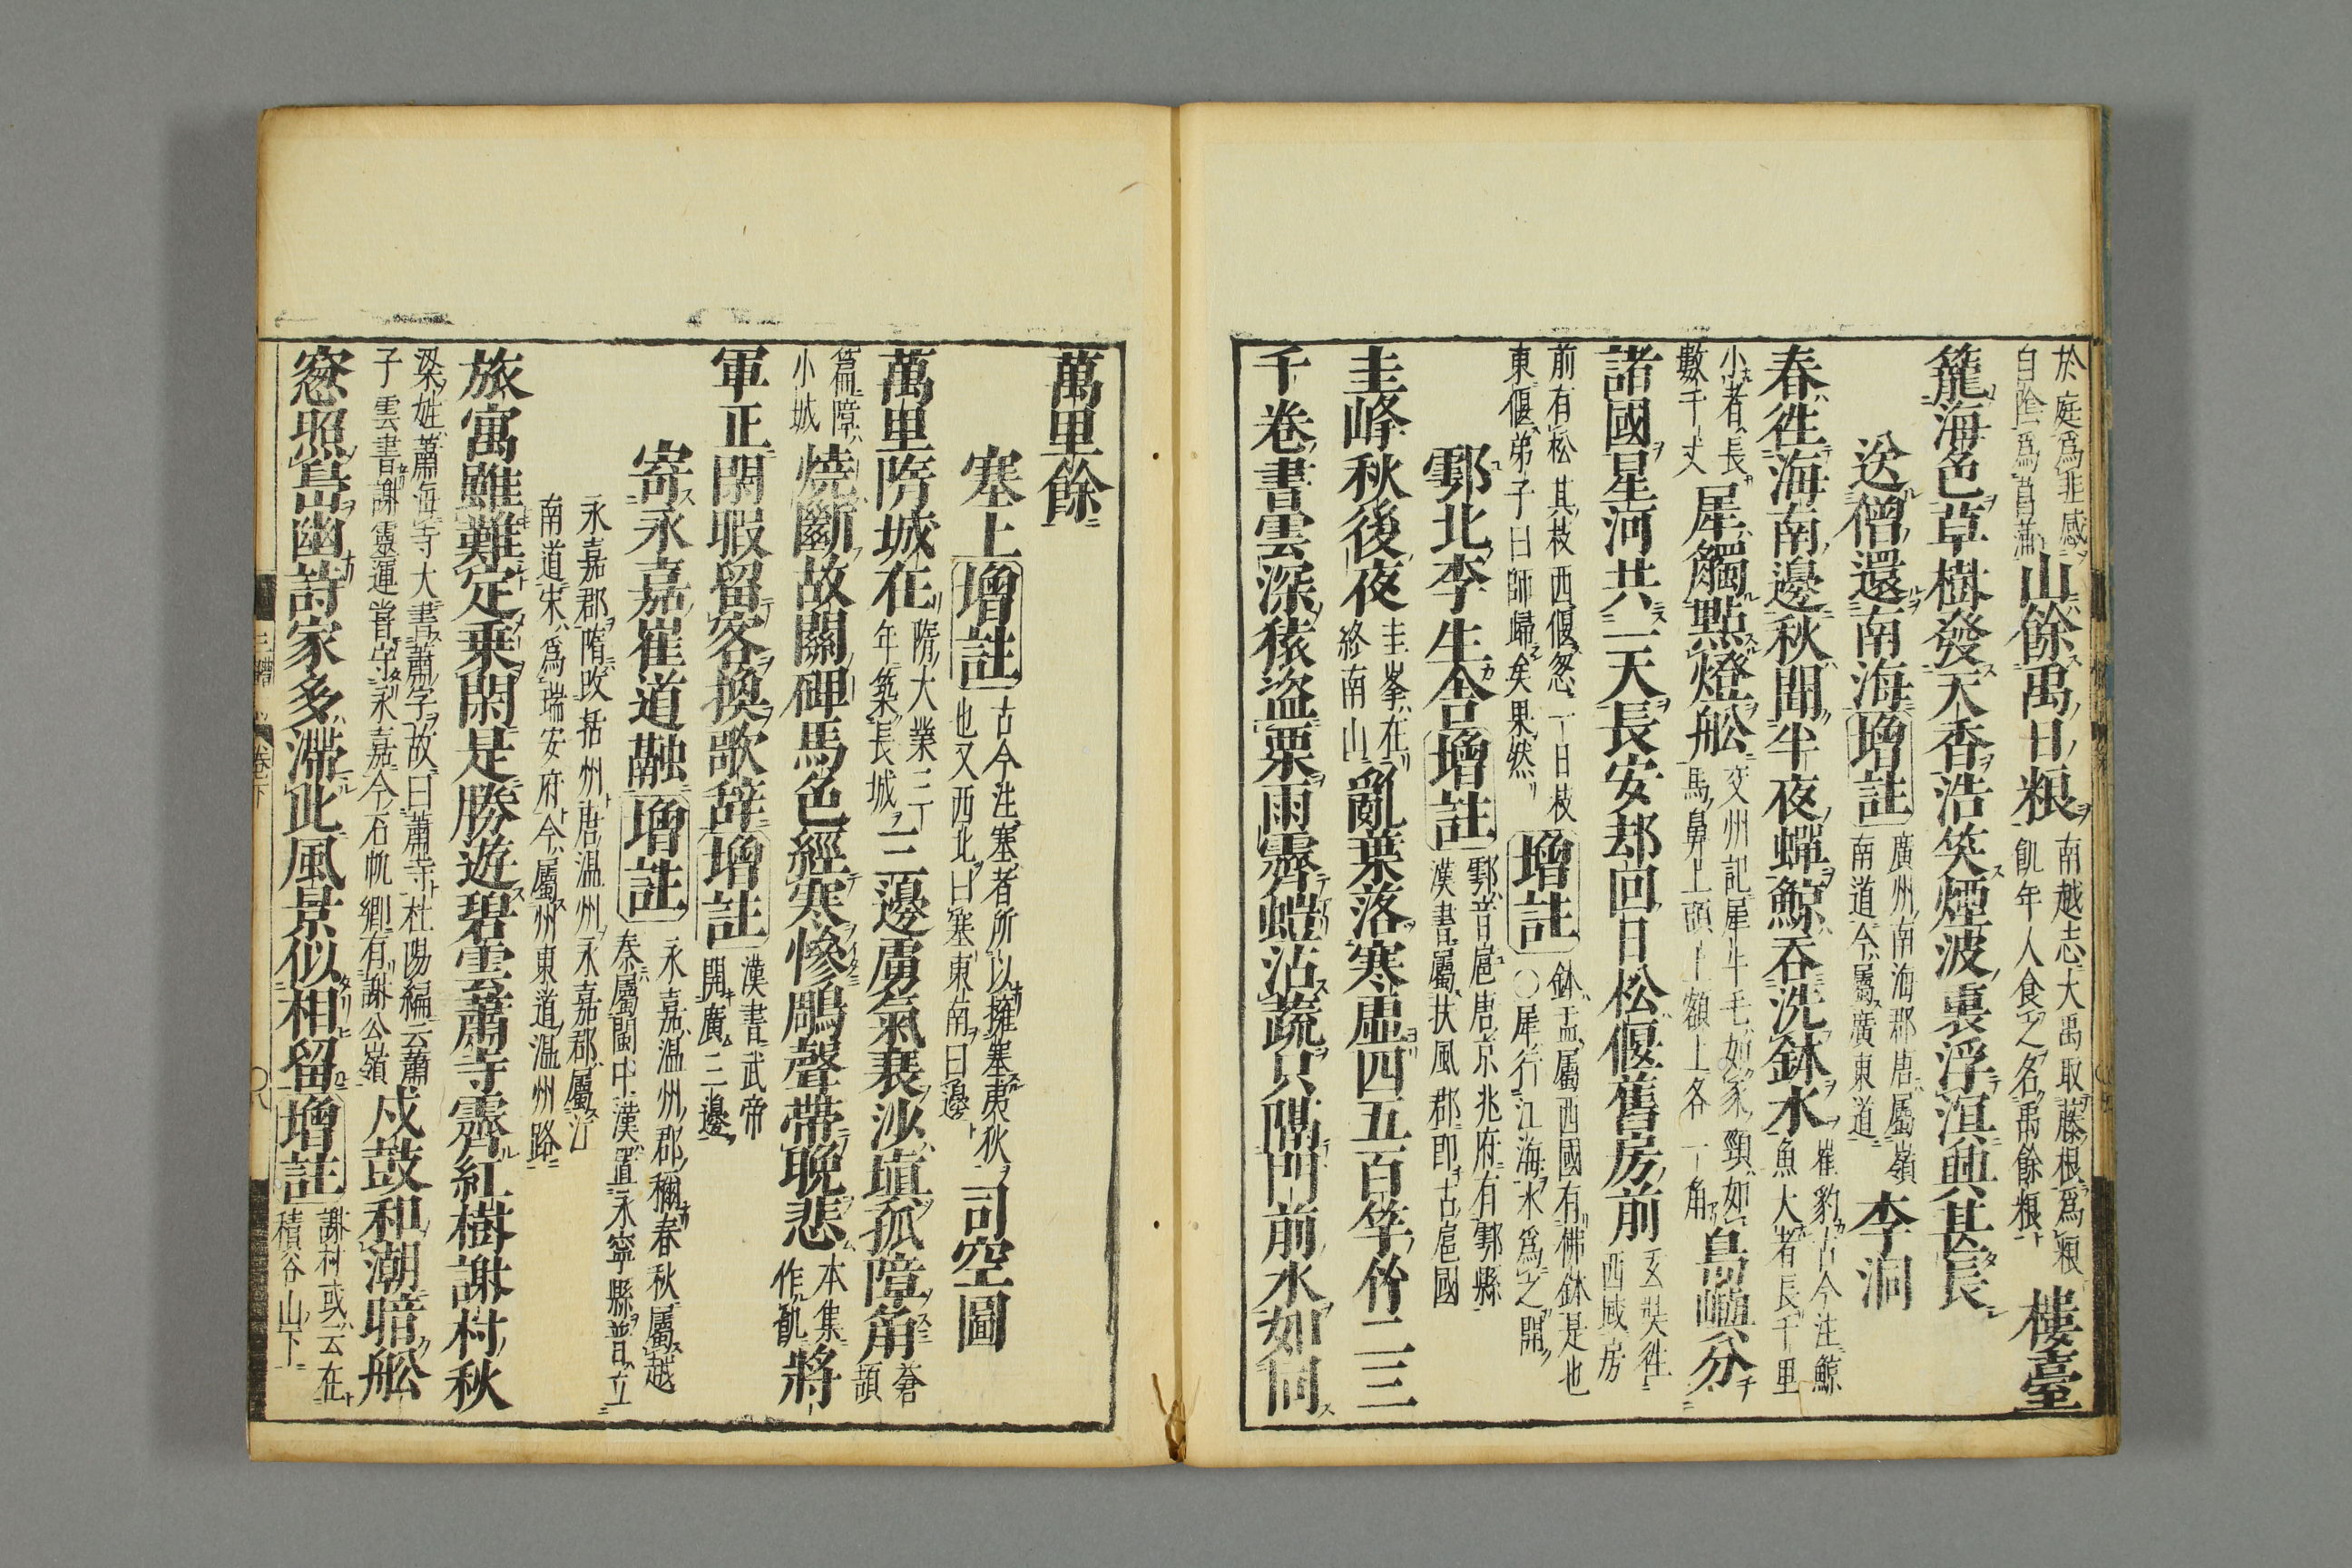 於庭爲悲感
白陰爲菖蒲
山餘禹日粮
南越志大禹取藤根爲粮
飢年人食之名禹餘粮
樓臺
籠海色草樹發天香浩笑煙波裏浮渲興甚長
送僧還南海
增註
廣州南海郡唐屬嶺
南道今屬廣東道
李洞
春徃海南邊秋聞半夜蟬鯨吞洗鉢水
崔豹古今注鯨
魚大者長千里
小者長
數千丈
犀觸點燈舩
交州記犀牛毛如豕頸如
馬鼻上頭上額上各一角
島嶼分
諸國星河共一天長安却回日松偃舊房前
玄奘徃
西域房
前有松其枝西偃忽一日枝
東偃弟子曰師歸矣果然
增註
鉢盂屬西國有佛鉢是也
○犀行江海水爲之開
鄠北李生舍
增註
鄠音扈唐京兆府有鄠縣
漢書屬扶風郡即古扈國
圭峰秋後夜
圭峯在
終南山
亂葉落寒虛四五百竿竹二三
千卷書雲深猿盜栗雨霽螘沾蔬只隔門前水如同
萬里餘
塞上
增註
古今注塞者所以擁塞夷狄
也又西北曰塞東南曰邊
司空圖
萬里隋城在
隋大業三
年築長城
三邊虜氣衰沙塡孤障角
蒼頡
篇障
小城
燒斷故關碑馬色經寒慘鵰聲帶晚悲
本集
作飢
將
軍正閑暇留客換歌辞
增註
漢書武帝
開廣三邊
寄永嘉崔道融
增註
永嘉温州郡禰春秋屬越
秦屬閩中漢置永寧縣晉立
永嘉郡隋改括州唐温州永嘉郡屬江
南道宋爲瑞安府今屬州東道温州路
旅寓雖難定乗閑是勝遊碧雲蕭寺霽紅樹謝村秋
梁姓蕭海寺大書蕭字故曰蕭寺杜陽編云蕭
子雲書謝靈運甞守永嘉今石帆郷有謝公嶺
戍鼓和潮暗舩
窓照島幽詩家多滞此風景似相留
增註
謝村或云在
積谷山下
三體
卷下